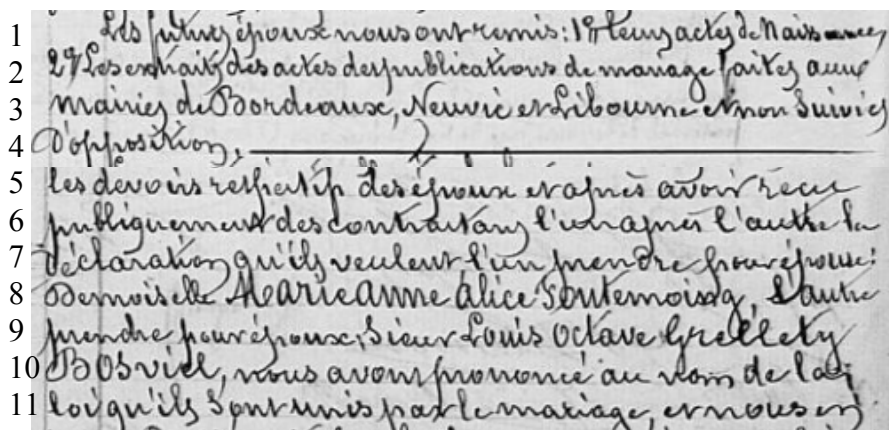 1 Les futurs époux nous ont remis : 1º leurs actes de Naissances,
2 2º Les extraits des actes des publications de mariage faites aux
3 mairies de Bordeaux, Neuvic et Libourne et non suivies
4 d'opposition,
5 les devoirs respectifs des époux et après avoir reçu
6 publiquement des contractans l'un après l'autre la
7 déclaration qu'ils veulent l'un prendre pour épouse :
8 Demoiselle Marie Anne Alice Fontemoing, l'autre
9 prendre pour époux, Sieur Louis Octave Grellety
10 Bosviel, nous avons prononcé au nom de la
11 loi qu'ils sont unis par le mariage, et nous en